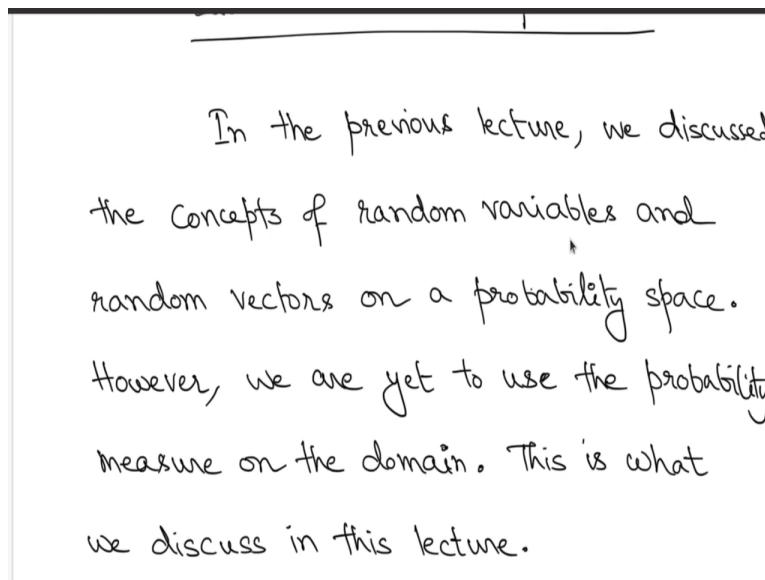 In the previous lecture, we discussed
the concepts of random variables and
random vectors on a probability space.
However, we are yet to use the probability
measure on the domain. This is what
we discuss in this lecture.